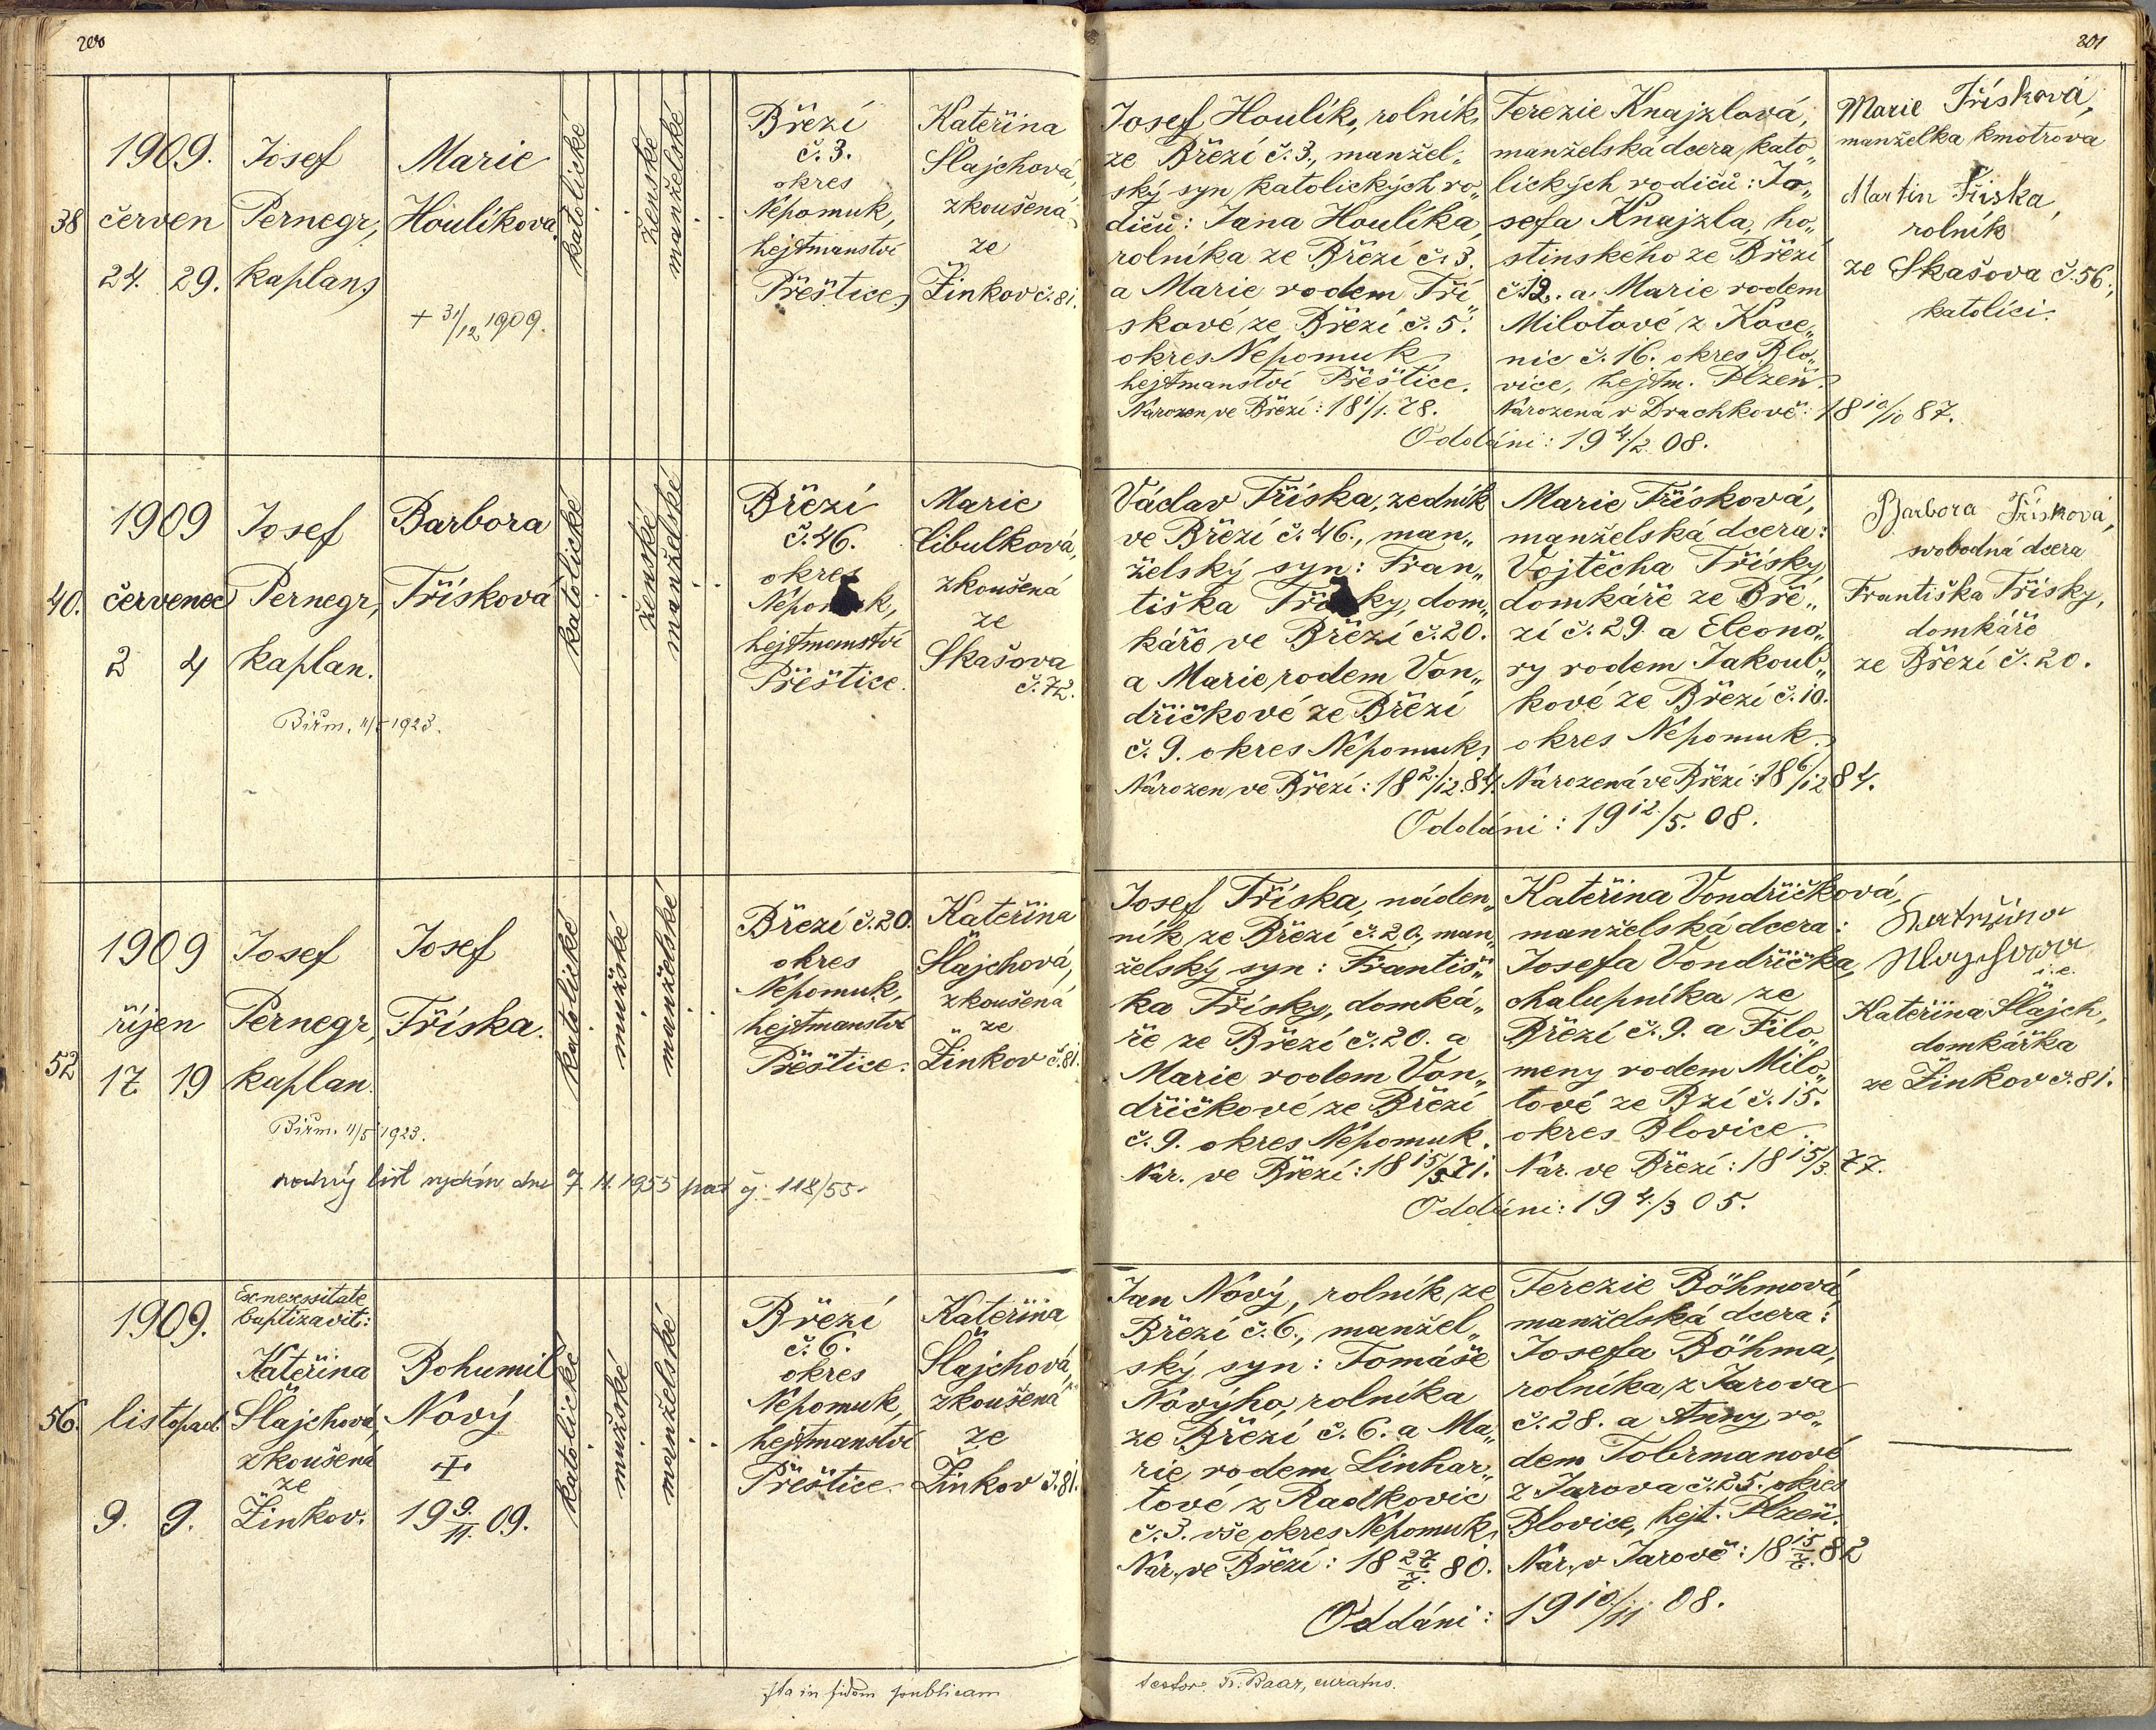 200
1909.
38
červen
24. 29.
Josef
Pernegr,
kaplan,
Marie
Houlíková.
+ 31/12 1909.
katolické
ženské
manželské
Březí
č. 3.
okres
Nepomuk,
hejtmanství
Přeštice,
Kateřina
Šlajchová,
zkoušená
ze
Žinkov č. 81.
1909
40.
červenec
2 4
Josef
Pernegr,
kaplan.
Barbora
Třísková
Biřm. 11/5 1923.
katolické
ženské
manželské
Březí
č. 46.
okres
Nepomuk,
hejtmanství
Přeštice.
Marie
Cibulková,
zkoušená
ze
Skašova
č. 72.
1909
říjen
52
17 19
Josef
Pernegr,
kaplan.
Josef
Tříska.
Biřm. 11/5 1923.
rodný list vydán dne 7. 11. 1955 pod čj. 118/55.
katolické
mužské
manželské
Březí č. 20.
okres
Nepomuk,
hejtmanství
Přeštice.
Kateřina
Šlajchová,
zkoušená
ze
Žinkov č. 81.
1909.
56.
listopad
9. 9.
Ex necessitate
baptizavit:
Kateřina
Šlajchová,
zkoušená
ze
Žinkov.
Bohumil
Nový
+
19 9./11. 09.
katolické
mužské
manželské
Březí
č. 6.
okres
Nepomuk,
hejtmanství
Přeštice.
Kateřina
Šlajchová,
zkoušená
ze
Žinkov č. 81.
Ita in fidem publicam
201
Josef Houlík, rolník,
ze Březí č. 3., manžel„
ský syn katolických ro„
dičů: Jana Houlíka,
rolníka ze Březí č. 3.
a Marie rodem Tří„
skové ze Březí č. 5.
okres Nepomuk,
hejtmanství Přeštice.
Narozen ve Březí: 18 1/1. 78.
Terezie Knajzlová,
manželská dcera kato„
lických rodičů: Jo„
sefa Knajzla, ho„
stinského ze Březí
č. 12. a Marie rodem
Milotové z Koce„
nic č. 16. okres Blo„
vice, hejtm. Plzeň.
Narozená v Drachkově: 18 10/10 87.
Oddáni: 19 4./2. 08.
Marie Třísková,
manželka kmotrova
Martin Tříska,
rolník
ze Skašova č. 56.,
katolíci.
Václav Tříska, zedník
ve Březí č. 46., man„
želský syn: Fran„
tiška Třísky, dom„
káře ve Březí č. 20.
a Marie rodem Von„
dříčkové ze Březí
č. 9. okres Nepomuk.
Narozen ve Březí: 18 2./12. 84.
Marie Třísková,
manželská dcera:
Vojtěcha Třísky,
domkáře ze Bře„
zí č. 29. a Eleono„
ry rodem Jakoub„
kové ze Březí č. 10.
okres Nepomuk.
Narozená ve Březí: 18 6/12 84.
Oddáni: 19 12./5. 08.
Barbora Třísková,
svobodná dcera
Františka Třísky,
domkáře
ze Březí č. 20.
Josef Tříska, náden„
ník ze Březí č. 20., man„
želský syn: Františ„
ka Třísky, domká„
ře ze Březí č. 20. a
Marie rodem Von„
dříčkové ze Březí
č. 9. okres Nepomuk.
Nar. ve Březí: 18 15/5. 71.
Kateřina Vondříčková,
manželská dcera:
Josefa Vondříčka,
chalupníka ze
Březí č. 9. a Filo„
meny rodem Milo„
tové ze Bzí č. 15.
okres Blovice.
Nar. ve Březí: 18 15/3. 77.
Oddáni: 19 4./3 05.
i. e.
Kateřina Šlajch,
domkářka
ze Žinkov č. 81.
Jan Nový, rolník ze
Březí č. 6., manžel„
ský syn: Tomáše
Nového, rolníka
ze Březí č. 6. a Ma„
rie rodem Linhar„
tové z Radkovic
č. 3. vše okres Nepomuk.
Nar. ve Březí: 18 27/7. 80.
Terezie Böhmová,
manželská dcera:
Josefa Böhma,
rolníka z Jarova
č. 28. a Anny ro„
dem Tobrmanové
z Jarova č. 25. okres
Blovice, hejt. Plzeň.
Nar. v Jarově: 18 15/7. 82
Oddáni: 19 10/11 08.
testor: Fr. Baar, curatus.